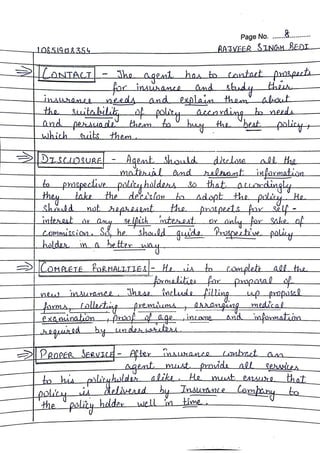 Page No. 8
10851908354 RAJVEER SINGH BEDI
⇒ CONTACT - The agent has to contact prospects
for insurance and study their
insurance needs and explain them about
the suitability of policy according to needs
and persuade them to buy the best policy,
which suits them.
⇒ DISCLOSURE - Agent should disclose all the
material and relevant information
to prospective policyholders so that accordingly
they take the decision to adopt the policy. He
should not represent the prospects for self-
interest or any selfish interest or only for sake of
commission. So, he should guide Prospective policy
holder in a better way.
⇒ COMPLETE FORMALITIES - He is to complete all the
formalities for proposal of
new insurance. These include filling up proposal
forms, collecting premiums, arranging medical
examination, proof of age, income and information
required by underwriters.
⇒ PROPER SERVICE - After insurance contract an
agent must provide all services
to his policyholder alike. He must ensure that
policy is delivered by Insurance Company to
the policy holder well in time.